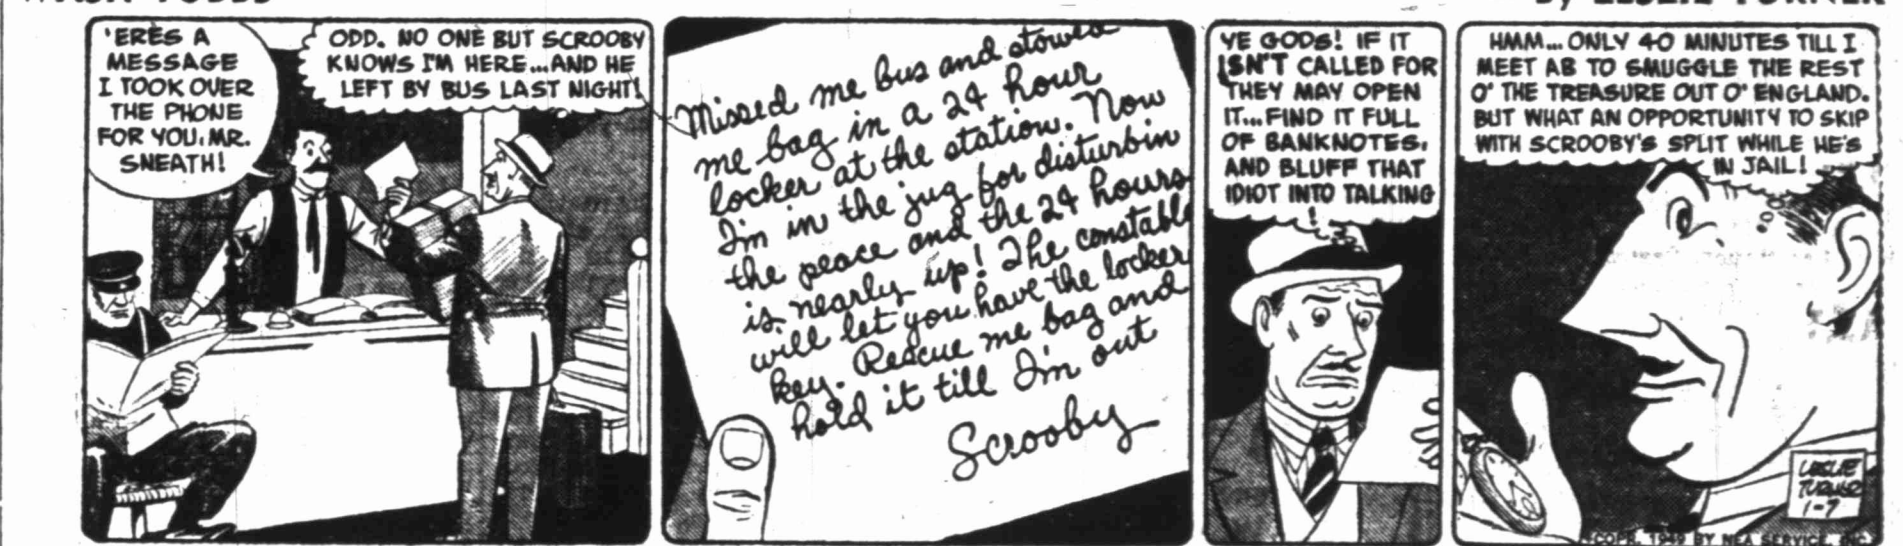 'ERES A
MESSAGE
I TOOK OVER
THE PHONE
FOR YOU, MR.
SNEATH!
ODD. NO ONE BUT SCROOBY
KNOWS I'M HERE...AND HE
LEFT BY BUS LAST NIGHT!
Missed me bus and stowed
me bag in a 24 hour
locker at the station. Now
I'm in the jug for disturbin
the peace and the 24 hours
is nearly up! The constable
will let you have the locker
key. Rescue me bag and
hold it till I'm out
Scrooby
YE GODS! IF IT
ISN'T CALLED FOR
THEY MAY OPEN
IT...FIND IT FULL
OF BANKNOTES,
AND BLUFF THAT
IDIOT INTO TALKING
!
HMM...ONLY 40 MINUTES TILL I
MEET AB TO SMUGGLE THE REST
O' THE TREASURE OUT O' ENGLAND.
BUT WHAT AN OPPORTUNITY TO SKIP
WITH SCROOBY'S SPLIT WHILE HE'S
IN JAIL!
LESLIE
TURNER
1-7
COPR. 1949 BY NEA SERVICE, INC.